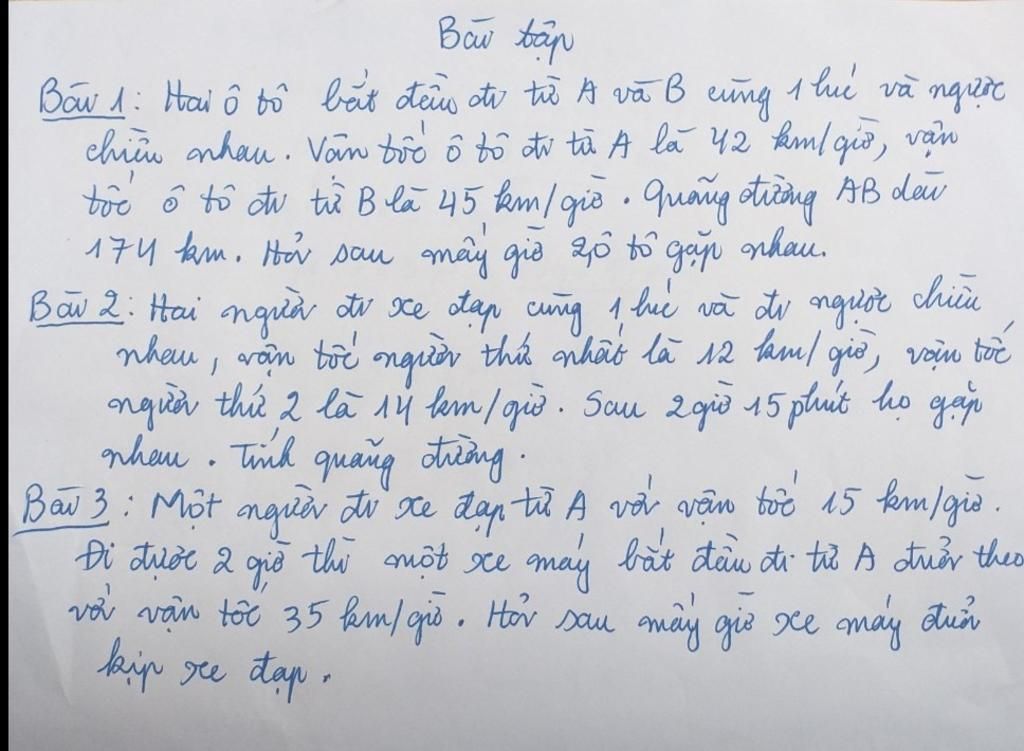 Bài tập
Bài 1: Hai ô tô bắt đầu đi từ A và B cùng 1 lúc và ngược
chiều nhau. Vận tốc ô tô đi từ A là 42 km/giờ, vận
tốc ô tô đi từ B là 45 km/giờ. Quãng đường AB dài
174 km. Hỏi sau mấy giờ 2 ô tô gặp nhau.
Bài 2: Hai người đi xe đạp cùng 1 lúc và đi ngược chiều
nhau, vận tốc người thứ nhất là 12 km/giờ, vận tốc
người thứ 2 là 14 km/giờ. Sau 2 giờ 15 phút họ gặp
nhau. Tính quãng đường.
Bài 3: Một người đi xe đạp từ A với vận tốc 15 km/giờ.
Đi được 2 giờ thì một xe máy bắt đầu đi từ A đuổi theo
với vận tốc 35 km/giờ. Hỏi sau mấy giờ xe máy đuổi
kịp xe đạp.